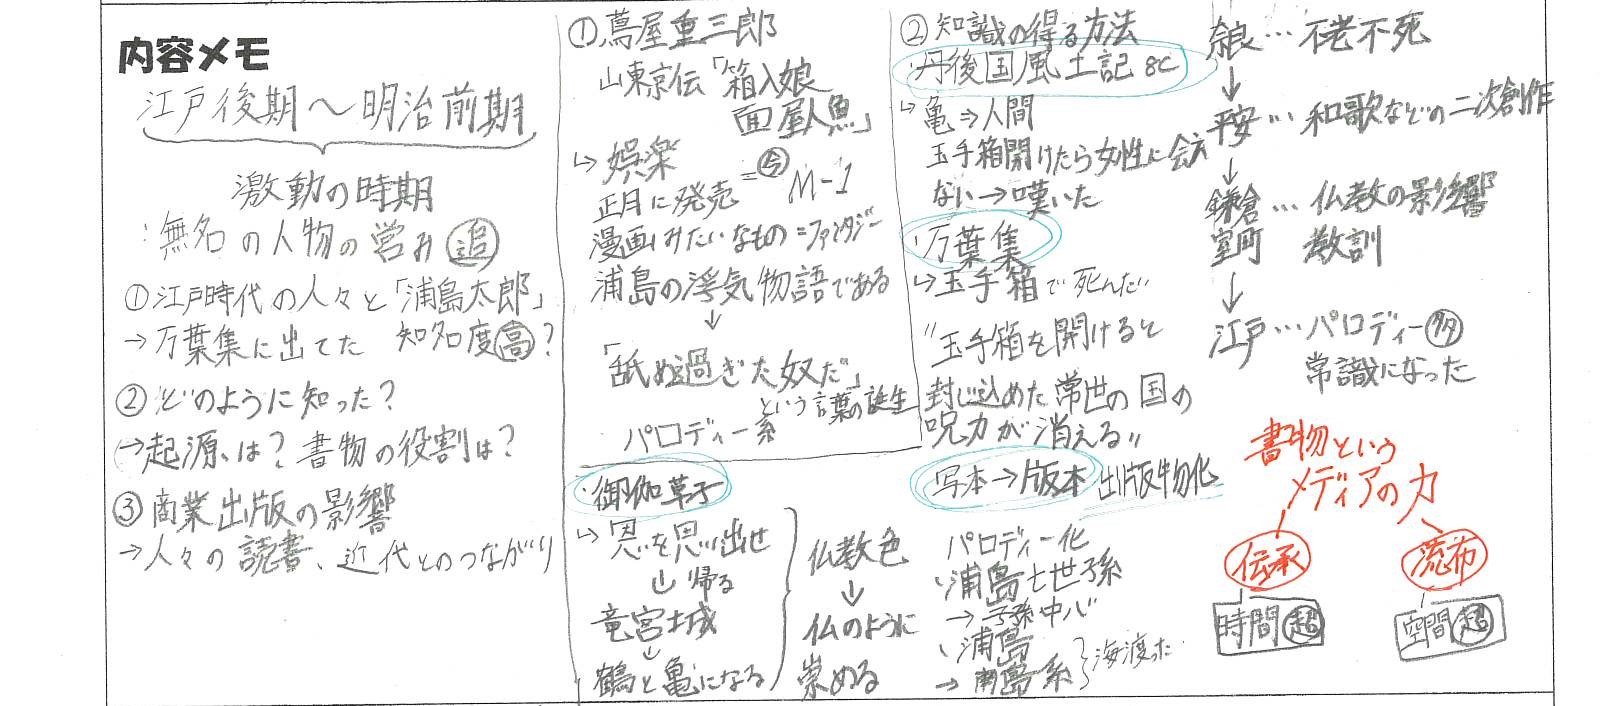 内容メモ
江戸後期～明治前期
激動の時期
:無名の人物の営み㊥追
①江戸時代の人々と「浦島太郎」
→万葉集に出てた 知名度高?
②どのように知った?
→起源は?書物の役割は?
③商業出版の影響
→人々の読書、近代とのつながり
①蔦屋重三郎
山東京伝「箱入娘
面屋人魚」
↳娯楽
正月に発売=今 M-1
漫画みたいなもの=ファンタジー
浦島の浮気物語である
↓
「舐め過ぎた奴だ」
という言葉の誕生
パロディー系
・御伽草子
↳恩を思い出せ
↳帰る
竜宮城
↓
鶴と亀になる
仏教色
↓
仏のように
崇める
②知識の得る方法
・丹後国風土記 8C
↳亀⇒人間
玉手箱開けたら女性に会え
ない→嘆いた
・万葉集
↳玉手箱で死んだ
"玉手箱を開けると
封じ込めた常世の国の
呪力が消える"
写本→版本 出版物化
パロディー化
、浦島七世孫
→子孫中心
、浦島
→南島系 海渡った
奈良…不老不死
↓
平安…和歌などの二次創作
↓
鎌倉…仏教の影響
室町 教訓
↓
江戸…パロディー多
常識になった
書物という
メディアの力
伝承
流布
時間超
空間超